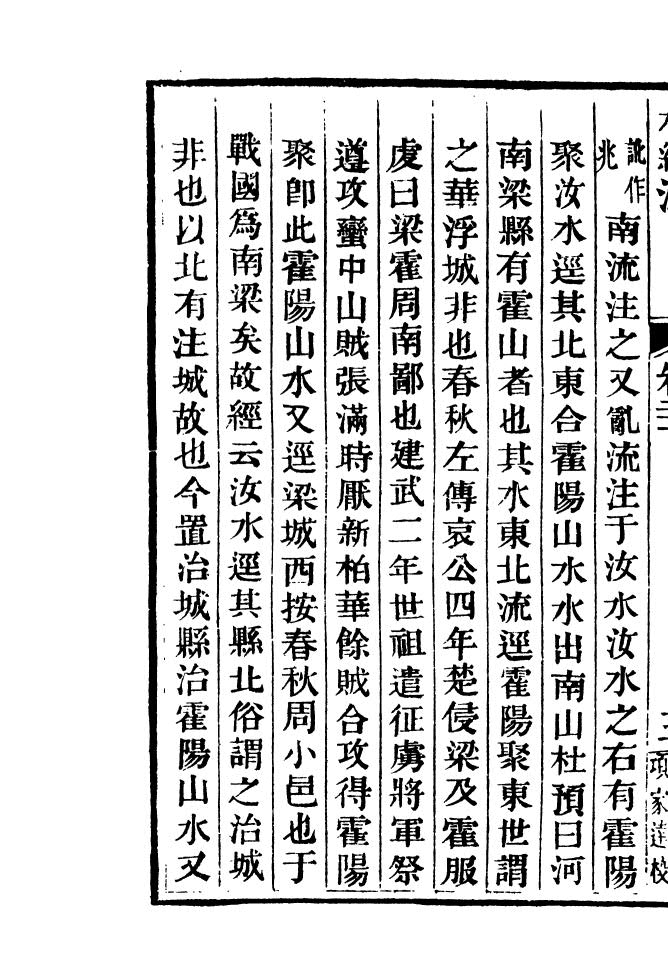 訛作
兆
南流注之又亂流注于汝水汝水之右有霍陽
聚汝水逕其北東合霍陽山水水出南山杜預曰河
南梁縣有霍山者也其水東北流逕霍陽聚東世謂
之華浮城非也春秋左傳哀公四年楚侵梁及霍服
虔曰梁霍周南鄙也建武二年世祖遣征虜將軍祭
遵攻蠻中山賊張滿時厭新柏華餘賊合攻得霍陽
聚卽此霍陽山水又逕梁城西按春秋周小邑也于
戰國爲南梁矣故經云汝水逕其縣北俗謂之治城
非也以北有注城故也今置治城縣治霍陽山水又